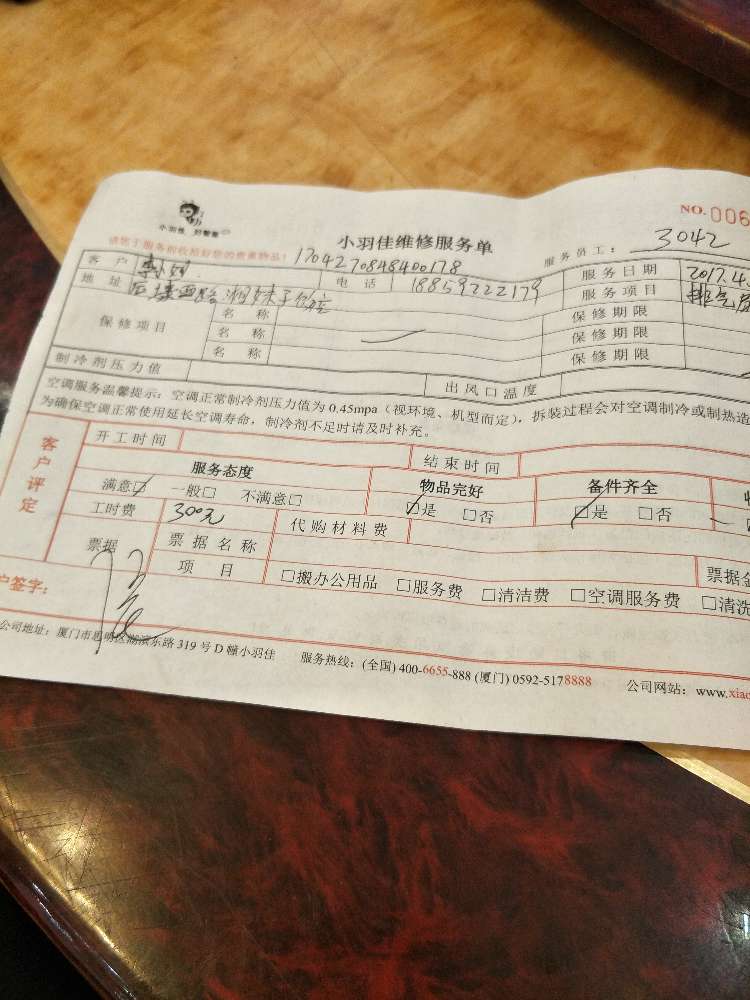 小羽佳 好管家
小羽佳维修服务单
NO.006
请您于服务前收拾好您的贵重物品!
170427084840 0178
服务员工: 3042
客户
电话 18859222179
服务日期 2017.4.
地址 后埭西路湘妹子
服务项目 排气扇
保修项目
名称
保修期限
名称
保修期限
名称
保修期限
制冷剂压力值
出风口温度
空调服务温馨提示: 空调正常制冷剂压力值为 0.45mpa (视环境、机型而定), 拆装过程会对空调制冷或制热造
为确保空调正常使用延长空调寿命, 制冷剂不足时请及时补充。
客户评定
开工时间
结束时间
服务态度
物品完好
备件齐全
满意☑ 一般□ 不满意□
☑是 □否
☑是 □否
工时费 300元
代购材料费
票据
票据名称
票据金
项目
□搬办公用品 □服务费 □清洁费 □空调服务费 □清洗
户签字:
公司地址: 厦门市思明区湖滨东路 319 号 D 幢小羽佳 服务热线: (全国) 400-6655-888 (厦门) 0592-5178888 公司网站: www.xiao